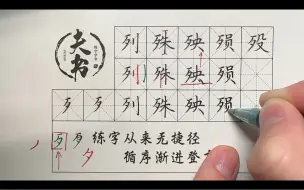 夫书
列 殊 殃 殒 殁
列 殊 殃 殒
歹 歹 列 殊 殃 殒
歹 歹 夕 练字从来无捷径
循序渐进登